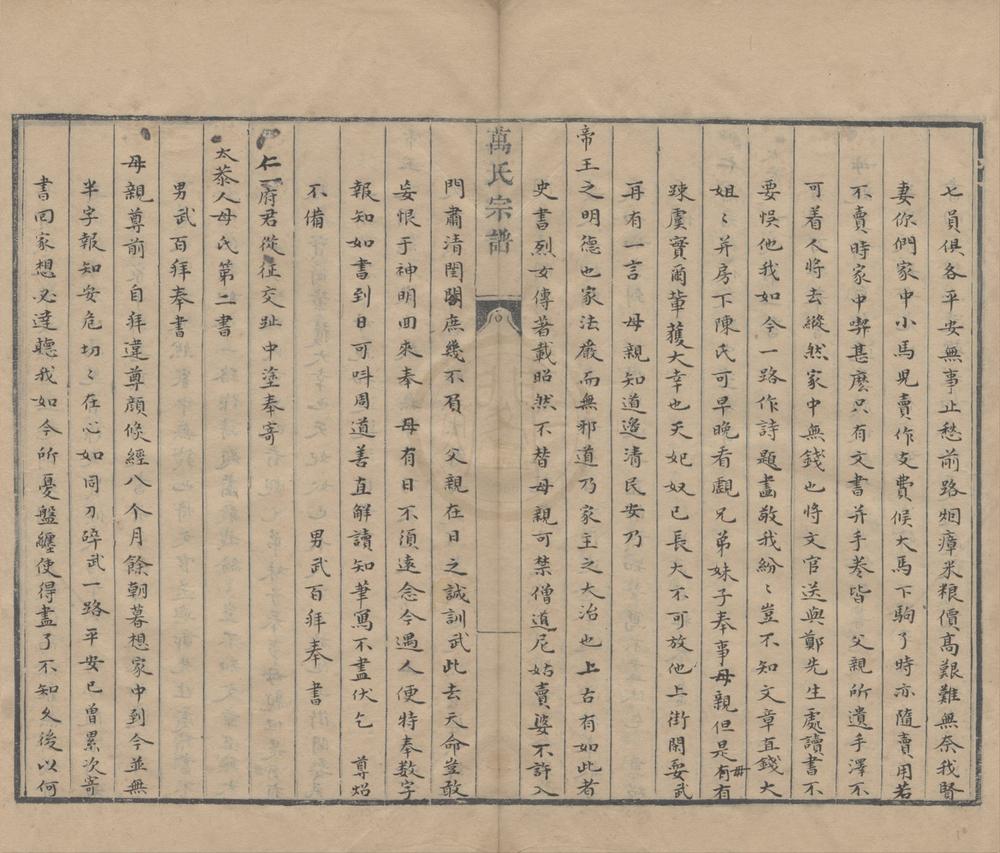 七員俱各平安無事止愁前路烟瘴米粮價髙艱難無奈我賢
妻你們家中小馬児賣作支費候大馬下駒了時亦隨賣用若
不賣時家中喫甚麽只有文書并手卷皆 父親所遺手澤不
可着人將去縱然家中無錢也將文官送與鄭先生處讀書不
要悞他我如今一路作詩題畵敬我紛〻豈不知文章直錢大
姐〻并房下陳氏可早晚看覷兄弟妹子奉事母親但是有毋有
踈虞寳爾葷獲大幸也天妃奴已長大不可放他上街閑耍武
再有一言母親知道邉清民安乃
帝王之明德也家法嚴而無邪道乃家主之大治也上古有如此者
史書烈女傳著載昭然不替母親可禁僧道尼姑賣婆不許入
萬氏宗譜
門肅清閨閫庶幾不負 父親在日之誠訓武此去天命豈敢
妄恨于神明回來奉母有日不須遠念今遇人便特奉数字
報知如書到日可呌周道善直解讀知筆罵不盡伏乞 尊炤
不備 男武百拜奉書
仁一府君從征交趾中塗奉寄
太恭人母氏第二書
男武百拜奉書
母親尊前自拜違尊顔倐經八个月餘朝暮想家中到今並無
半字報知安危切〻在心如同刀碎武一路平安已曽累次寄
書回家想必達聼我如今所憂盤纏使得盡了不知久後以何